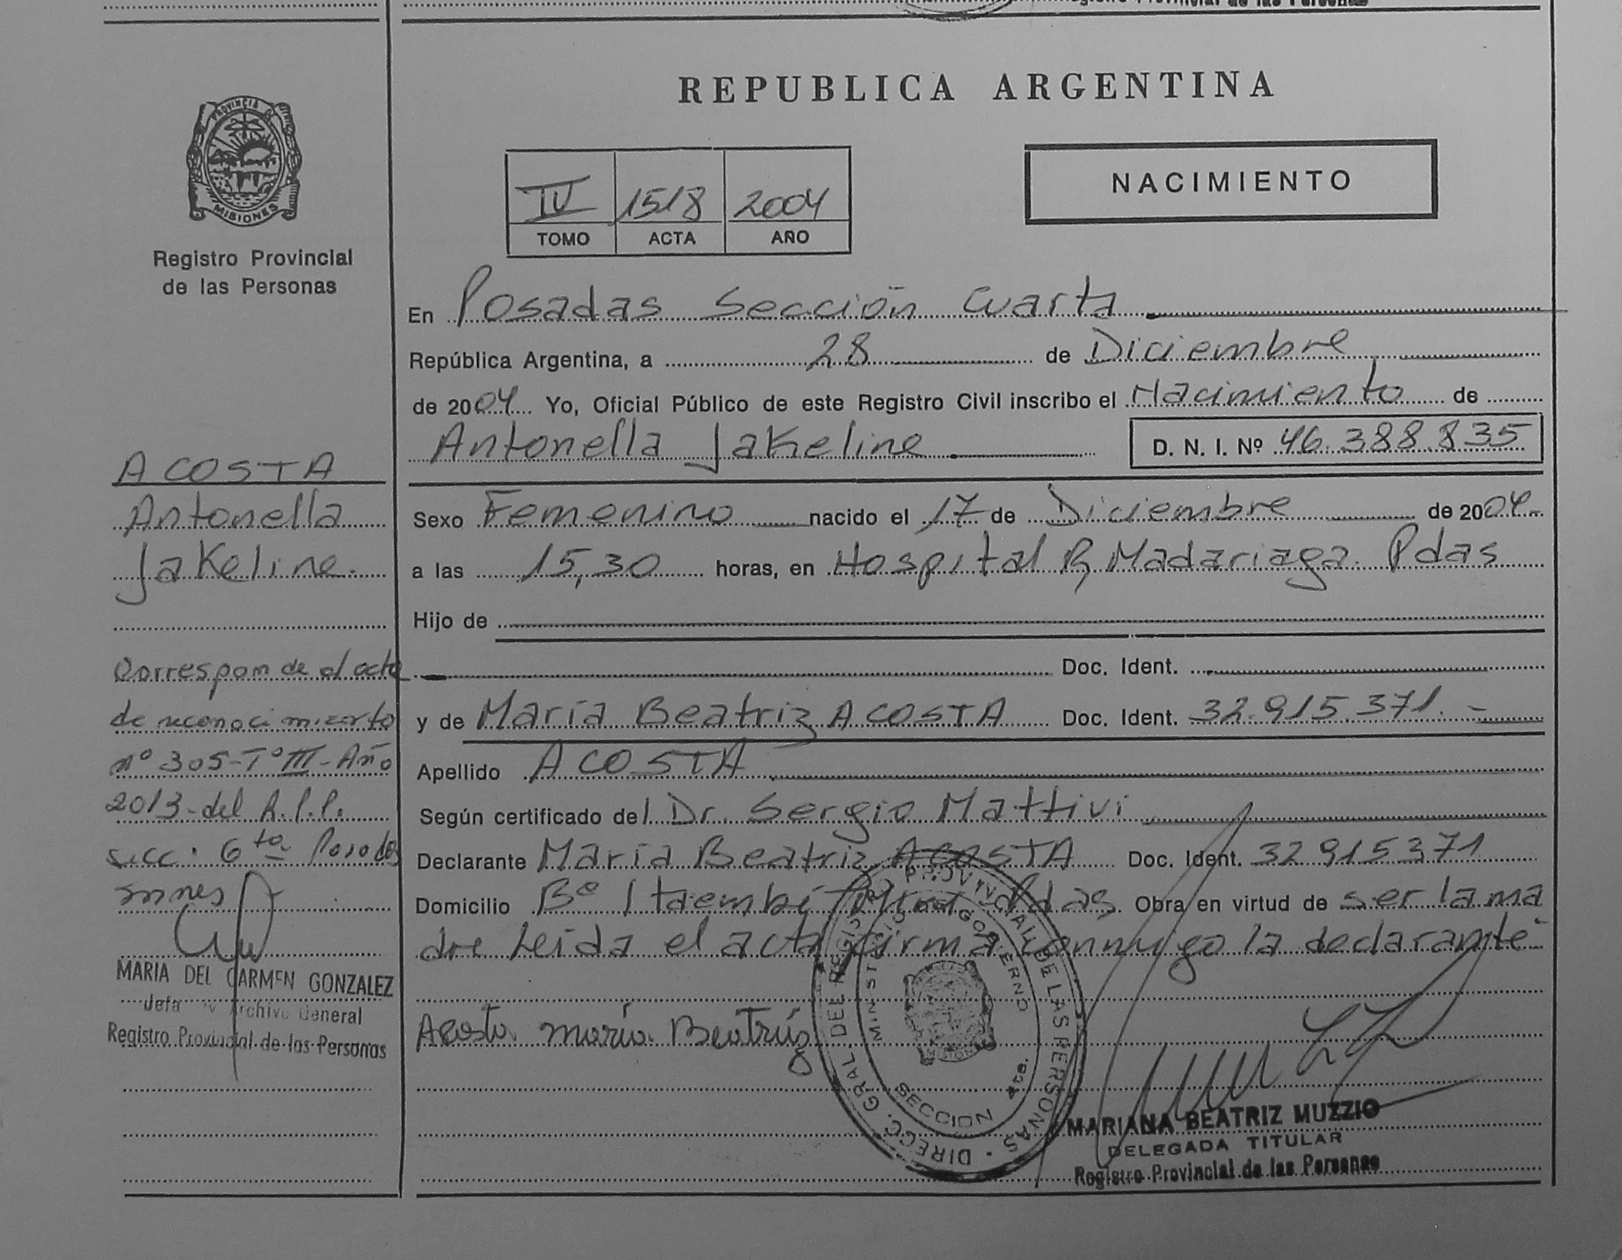 Registro Provincial de las Personas
REPUBLICA ARGENTINA
PROVINCIA DE
MISIONES
Registro Provincial
de las Personas
IV 1518 2004
TOMO ACTA AÑO
NACIMIENTO
En Posadas Sección Cuarta
República Argentina, a 28 de Diciembre
de 2004 Yo, Oficial Público de este Registro Civil inscribo el Nacimiento de
Antonella Jakeline D. N. I. Nº 46.388.835
Sexo Femenino nacido el 17 de Diciembre de 2004
a las 15,30 horas, en Hospital R, Madariaga. Pdas
Hijo de
Doc. Ident.
y de María Beatriz ACOSTA Doc. Ident. 32.915.371.-
Apellido ACOSTA
Según certificado del Dr. Sergio Mattivi
Declarante María Beatriz ACOSTA Doc. Ident. 32915371
Domicilio Bº Itaembí Miní Pdas Obra en virtud de ser la ma
dre Leida el acta firma conmigo la declarante-
Acosta maría Beatríz
ACOSTA
Antonella
Jakeline.
Corresponde al acta
de reconocimiento
nº 305-Tº III-Año
2013-del R.P.P.
secc. 6ta Posadas
mnes
MARIA DEL CARMEN GONZALEZ
Jefa Archivo General
Registro Provincial de las Personas
DIRECC. GRAL. DE REGISTRO PROVINCIAL DE LAS PERSONAS
MINISTERIO GOBIERNO
SECCION 4ta.
MARIANA BEATRIZ MUZZIO
DELEGADA TITULAR
Registro Provincial de las Personas